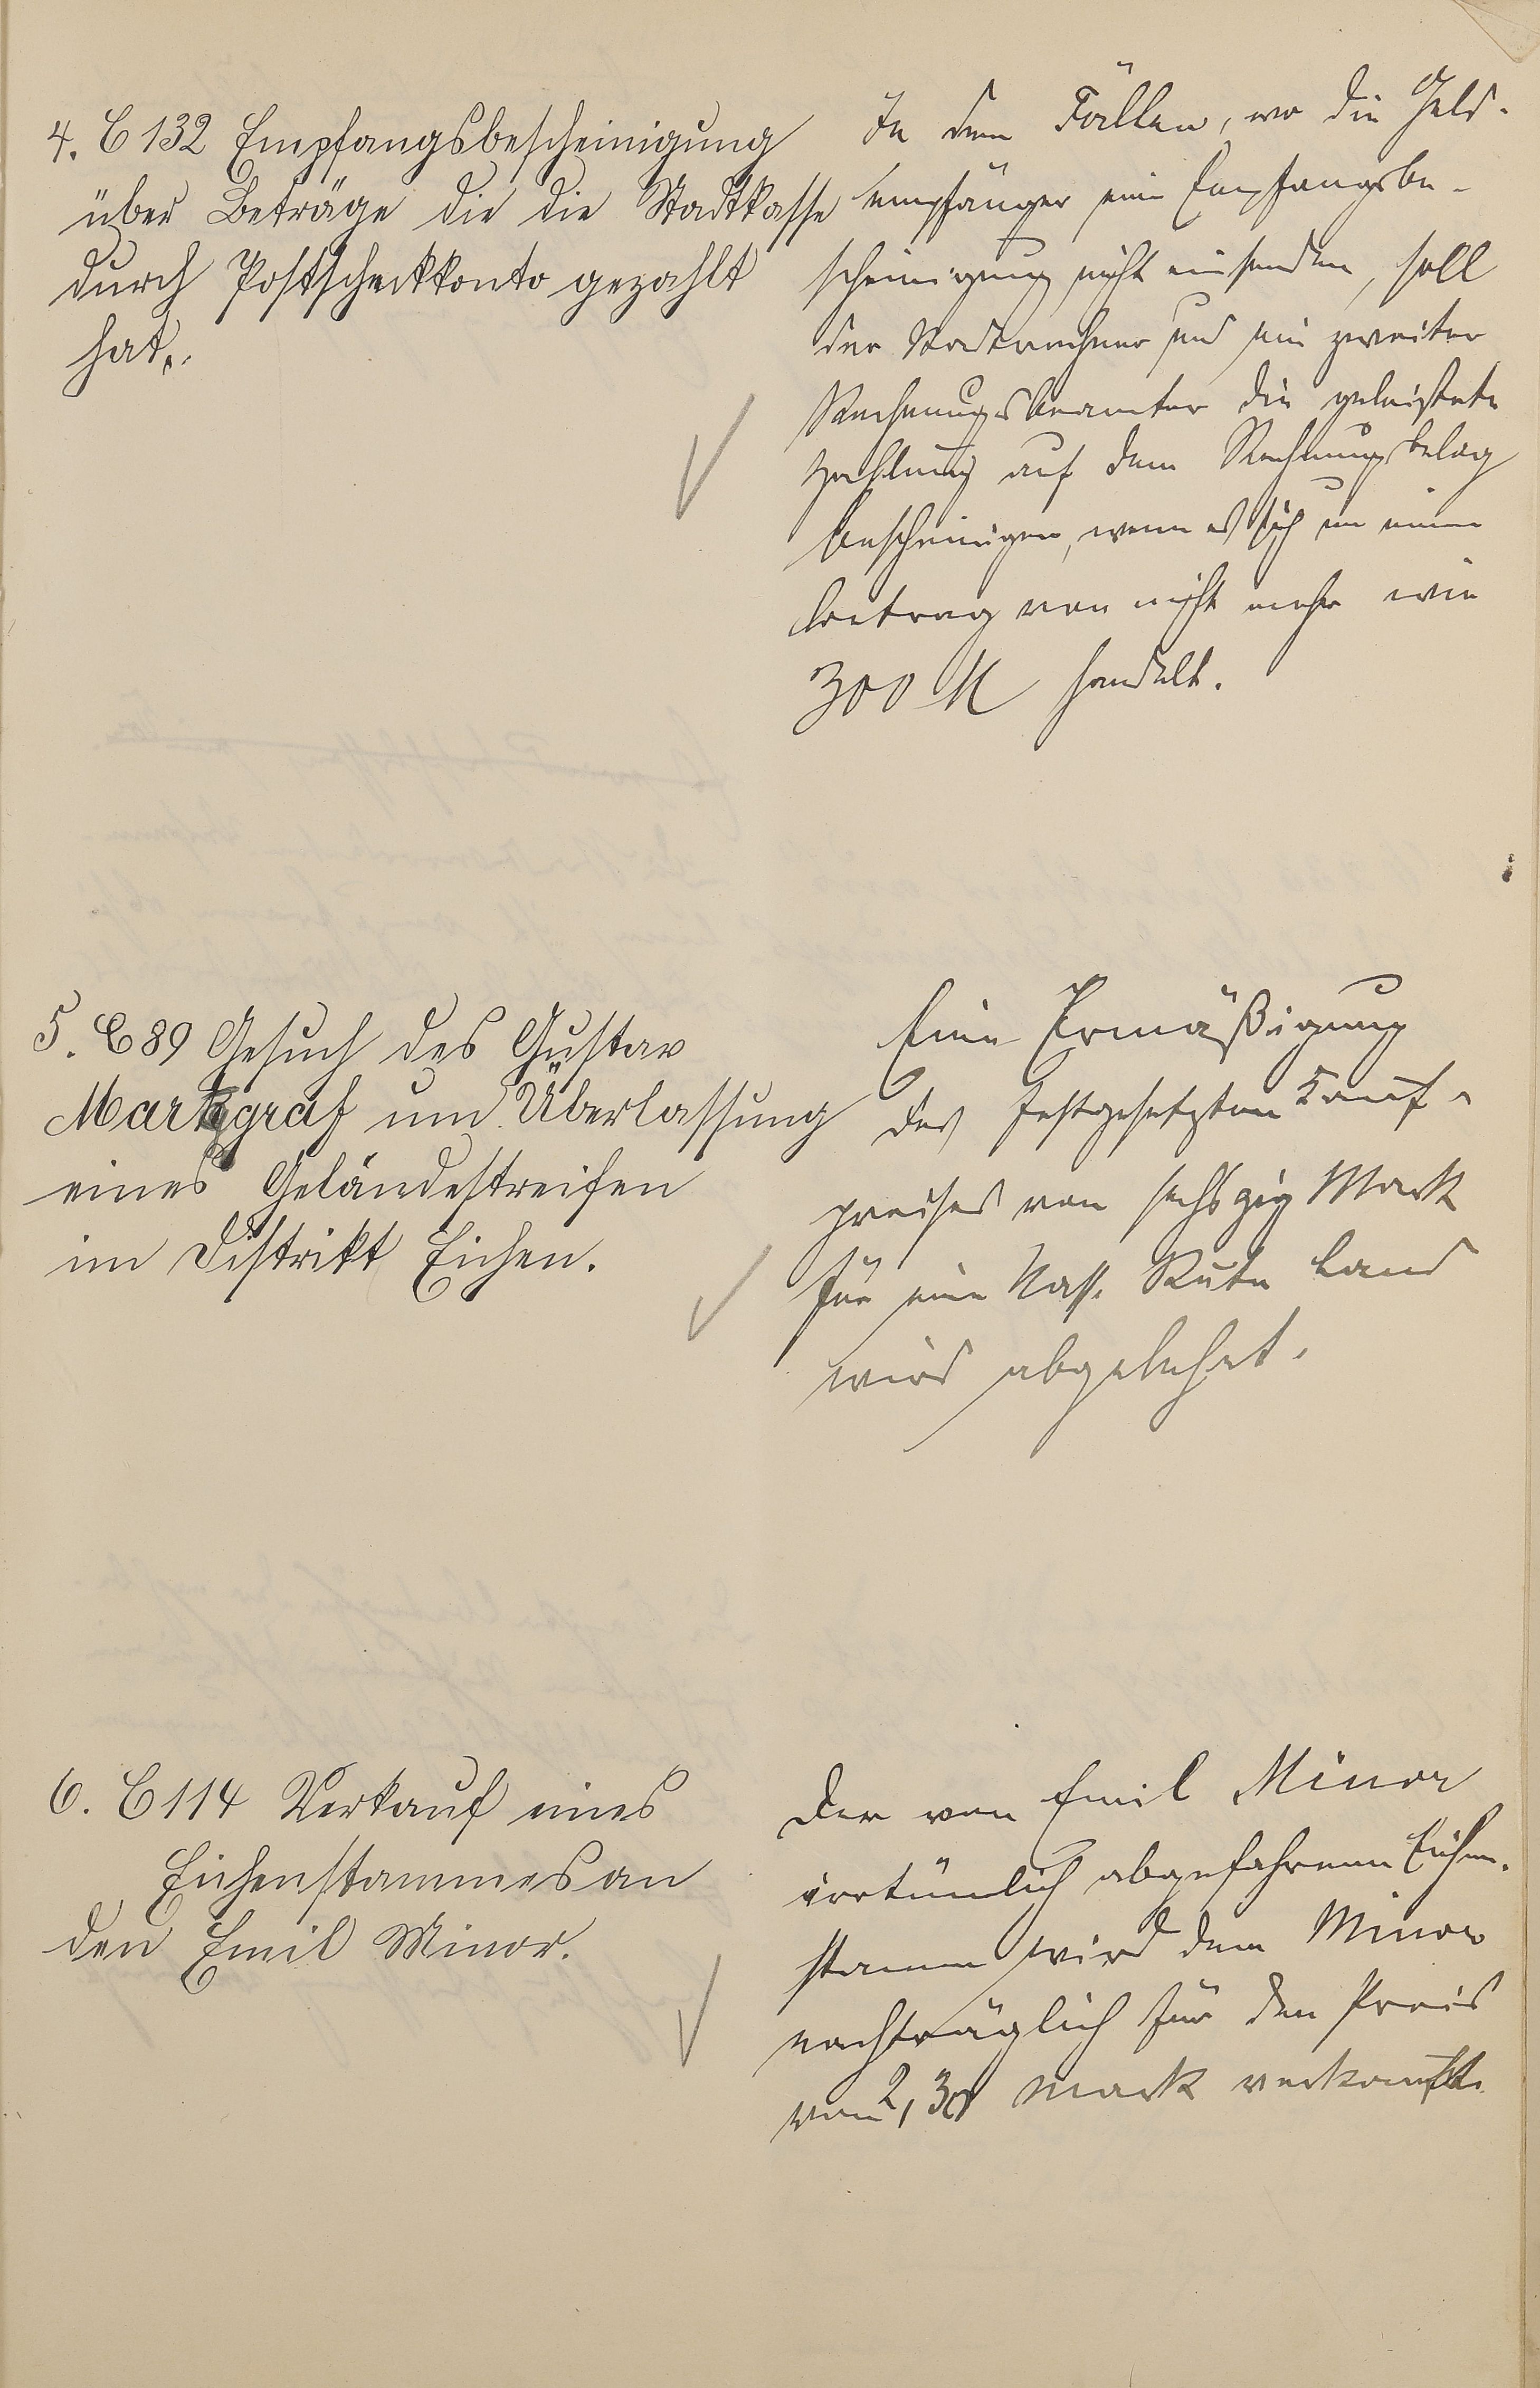 4. C 132 Empfangsbescheinigung
über Beträge die die Stadtkasse
durch Postscheckkonto gezahlt
hat.
In den Fällen, wo die Geld-
empfänger eine Empfangsbe-
scheinigung nicht einsenden, soll
der Stadtrechner und ein zweiter
Rechnungsbeamter die geleistete
Zahlung auf dem Rechnungsbelag
bescheinigen, wenn es sich um einen
Betrag von nicht mehr wie
300 M handelt.
5. C 89 Gesuch des Gustav
Markgraf um Überlassung
eines Geländestreifen
im Distrikt Eichen.
Eine Ermäßigung
des festgesetzten Kauf-
preises von sechszig Mark
für eine Nass. Rute Land
wird abgelehnt.
6. C 114 Verkauf eines
Eichenstammes an
den Emil Minor.
Der von Emil Minor
irrtümlich abgefahrene Eichen-
stamm wird dem Minor
nachträglich für den Preis
von 2,30 Mark verkauft.